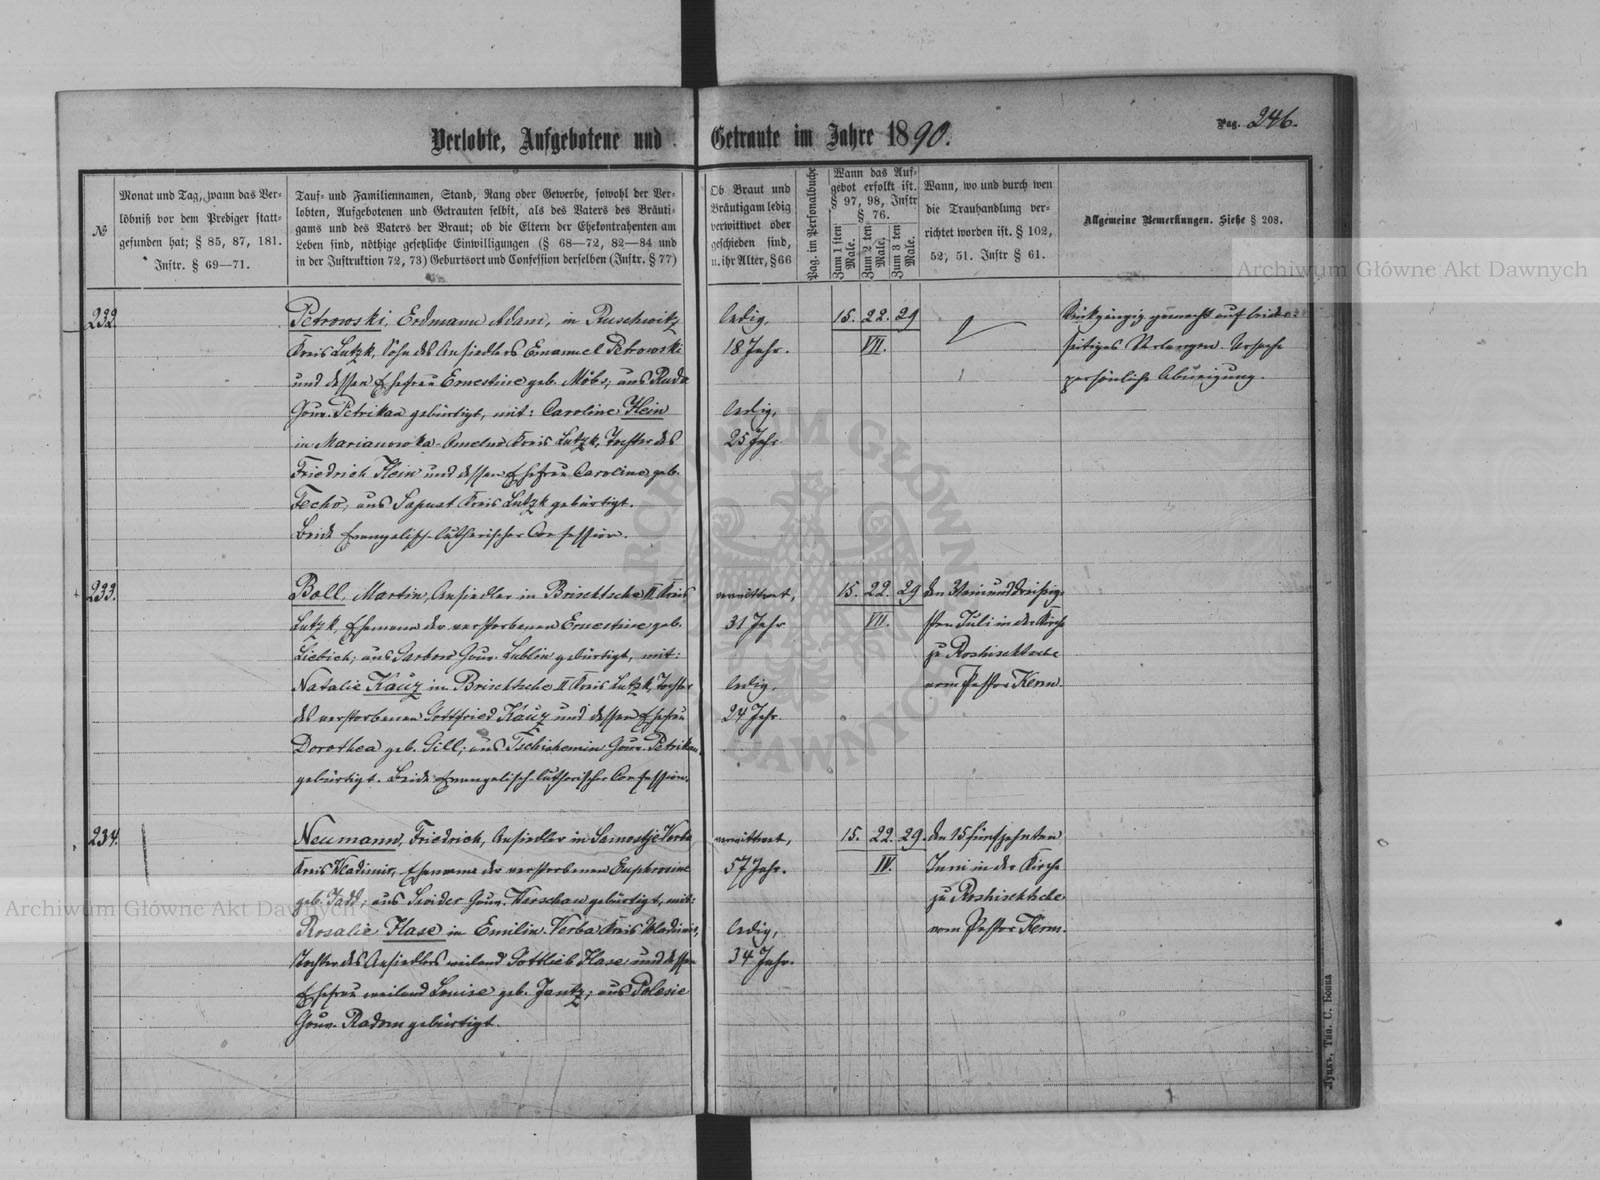 Verlobte, Aufgebotene und Getraute im Jahre 1890.
Pag. 246.
№
Monat und Tag, wann das Ver-
löbniß vor dem Prediger statt-
gefunden hat; § 85, 87, 181.
Instr. § 69—71.
Tauf- und Familiennamen, Stand, Rang oder Gewerbe, sowohl der Ver-
lobten, Aufgebotenen und Getrauten selbst, als des Vaters des Bräuti-
gams und des Vaters der Braut; ob die Eltern der Ehekontrahenten am
Leben sind, nöthige gesetzliche Einwilligungen (§ 68—72, 82—84 und
in der Instruktion 72, 73) Geburtsort und Confession derselben (Instr. § 77)
Ob Braut und
Bräutigam ledig
verwittwet oder
geschieden sind,
u. ihr Alter, § 66
Pag. im Personalbuche
Wann das Auf-
gebot erfolkt ist.
§ 97, 98, Instr
§ 76.
Zum 1 sten Male.
Zum 2 ten Male.
Zum 3 ten Male.
Wann, wo und durch wen
die Trauhandlung ver-
richtet worden ist. § 102,
52; 51. Instr § 61.
Allgemeine Bemerkungen. Siehe § 208.
232.
Petrowski, Erdmann Adam, in Ruschwitz
Kreis Lutzk, Sohn des Ansiedlers Emanuel Petrowski
und dessen Ehefrau Ernestine geb. Möbs, aus Ruda
Gouv. Petrikau gebürtigt, mit: Caroline Hein
in Marianowka-Amelno Kreis Lutzk, Tochter des
Friedrich Hein und dessen Ehefrau Caroline geb.
Techo, aus Sapust Kreis Lutzk gebürtigt.
Beide Evangelisch-lutherischer Confession.
ledig,
18 Jahr.
ledig,
25 Jahr
15. 22. 29
VII.
Rückgängig gemacht auf beider-
seitiges Verlangen. Ursache
persönliche Abneigung.
233.
Boll, Martin, Ansiedler in Brischtsche II Kreis
Lutzk, Ehemann der verstorbenen Ernestine geb.
Liebich, aus Garbow Gouv. Lublin gebürtigt, mit:
Natalie Kauz in Brischtsche II Kreis Lutzk, Tochter
des verstorbenen Gottfried Kauz und dessen Ehefrau
Dorothea geb. Gill, aus Tschishemin Gouv. Petrikau
gebürtigt. Beide Evangelisch-lutherischer Confession.
verwittwet,
31 Jahr
ledig,
24 Jahr.
15. 22. 29
VII.
den 31 einunddreißig-
sten Juli in der Kirche
zu Roshischtsche
vom Pastor Kern.
234.
Neumann, Friedrich, Ansiedler in Samostje-Verba
Kreis Wladimir, Ehemann der verstorbenen Euphrosine
geb. Jadd, aus Swider Gouv. Warschau gebürtigt, mit:
Rosalie Hase in Emilin-Verba Kreis Wladimir,
Tochter des Ansiedlers weiland Gottlieb Hase und dessen
Ehefrau weiland Louise geb. Jantz, aus Polesie
Gouv. Radom gebürtigt.
verwittwet,
57 Jahr.
ledig,
34 Jahr.
15. 22. 29.
IV.
den 15 fünfzehnten
Juni in der Kirche
zu Roshischtsche
vom Pastor Kern.
Луцкъ, Тип. С. Бонка
Archiwum Główne Akt Dawnych
Archiwum Główne Akt Dawnych
ARCHIWUM GŁÓWNE AKT DAWNYCH